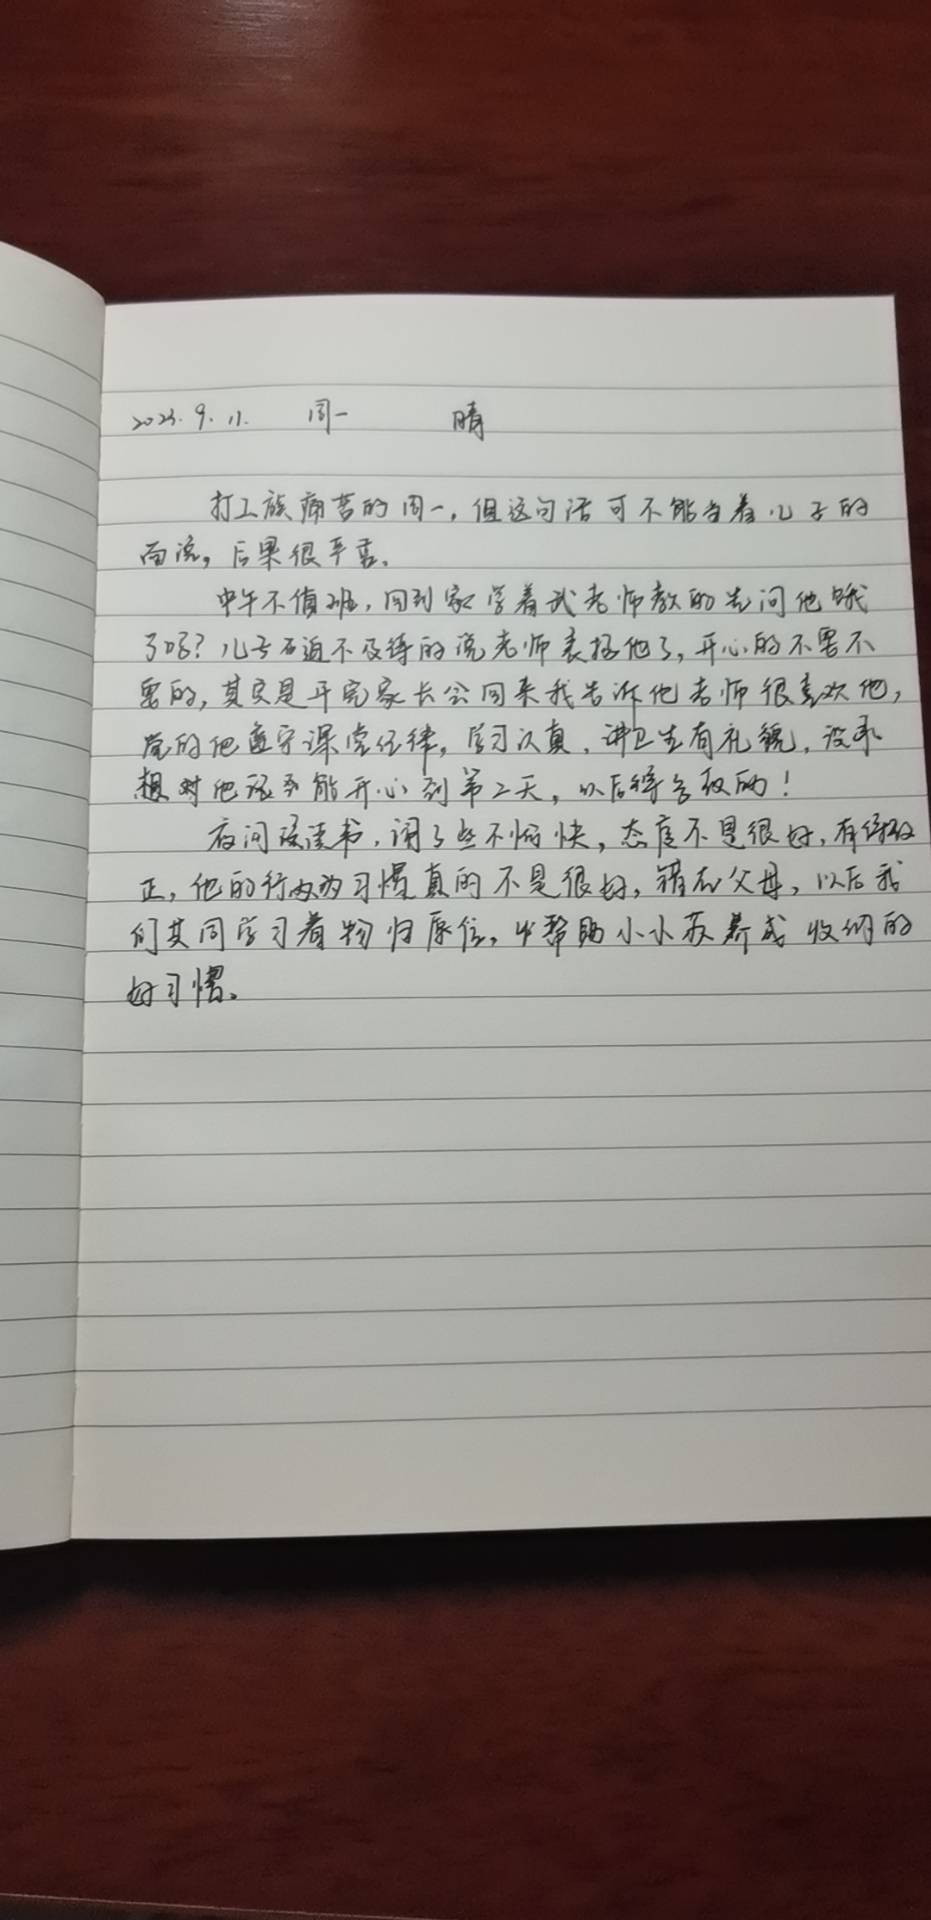 2023.9.11. 周一 晴
打工族痛苦的周一，但这句话可不能当着儿子的
面说，后果很严重。
中午不值班，回到家学着武老师教的先问他饿
了吗？儿子迫不及待的说老师表扬他了，开心的不要不
要的，其实是开完家长会回来我告诉他老师很喜欢他，
他遵守课堂纪律，学习认真，讲卫生有礼貌，没承
想对他能开心到第二天，以后得多
夜间读书，闹了些不愉快，态度不是很好，有待改
正，他的行为习惯真的不是很好，错在父母，以后我
们共同学习着物归原位，帮助小小苏养成收纳的
好习惯。